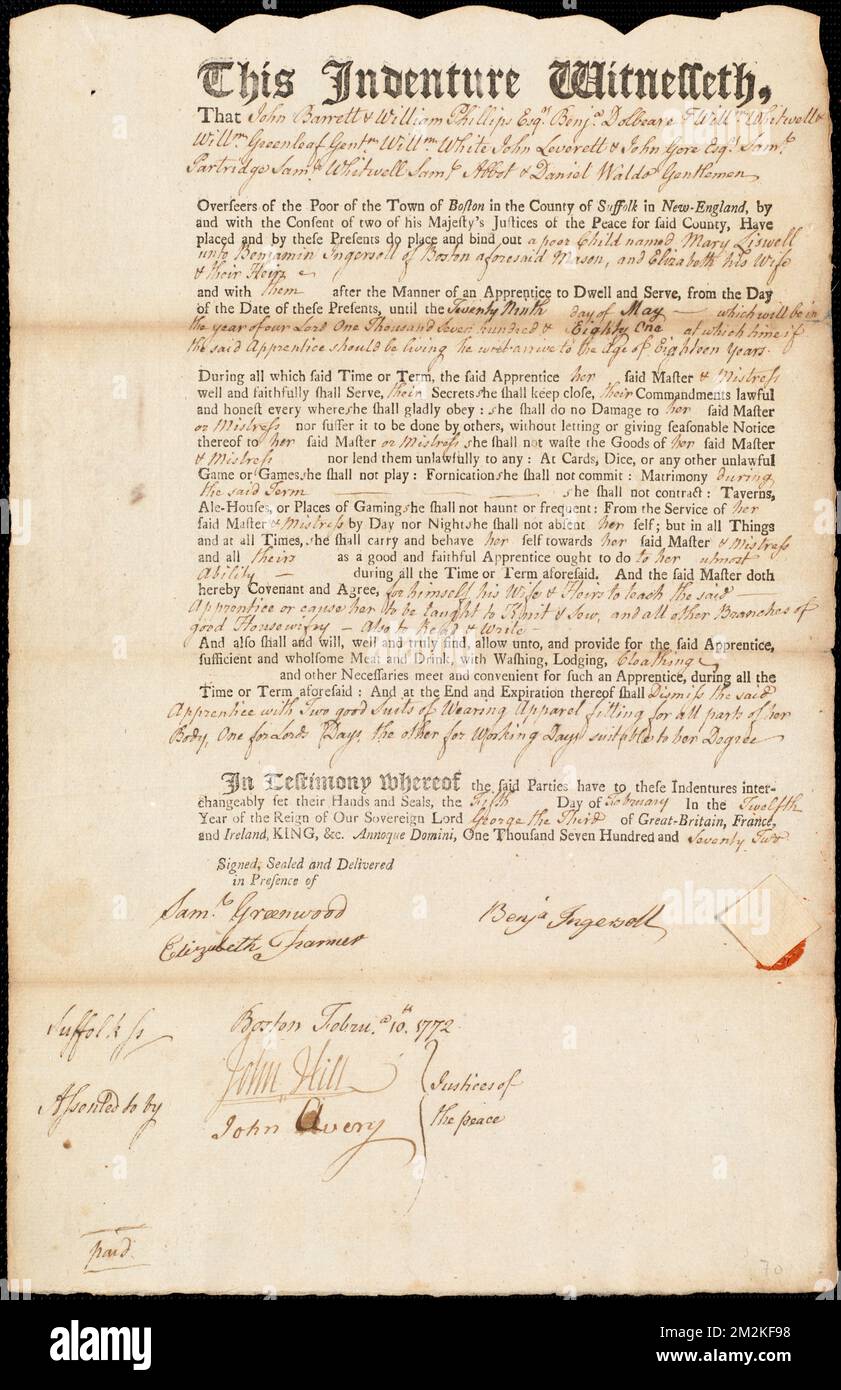 This Indenture Witnesseth,
That John Barrett & William Phillips Esqrs Benja Dolbeare & Willm Whitwell &
Willm Greenleaf Gentm Willm White John Leverett & John Gore Esqs Saml
Partridge Saml Whitwell Saml Abbot & Daniel Waldo Gentlemen
Overseers of the Poor of the Town of Boston in the County of Suffolk in New-England, by
and with the Consent of two of his Majesty's Justices of the Peace for said County, Have
placed and by these Presents do place and bind out a poor Child named Mary Liswell
unto Benjamin Ingersell of Boston aforesaid Mason, and Elizabeth his Wife
& their Heirs
and with them after the Manner of an Apprentice to Dwell and Serve, from the Day
of the Date of these Presents, until the Twenty Ninth day of May — which will be in
the year of our Lord One Thousand Seven hundred & Eighty One at which time if
the said Apprentice should be living he will arrive to the Age of Eighteen Years.
During all which said Time or Term, the said Apprentice her said Master & Mistress
well and faithfully shall Serve, their Secrets she shall keep close, their Commandments lawful
and honest every where she shall gladly obey : she shall do no Damage to her said Master
or Mistress nor suffer it to be done by others, without letting or giving seasonable Notice
thereof to her said Master or Mistress she shall not waste the Goods of her said Master
& Mistress nor lend them unlawfully to any : At Cards, Dice, or any other unlawful
Game or Games she shall not play : Fornication she shall not commit : Matrimony during
the said Term — she shall not contract : Taverns,
Ale-Houses, or Places of Gaming she shall not haunt or frequent : From the Service of her
said Master & Mistress by Day nor Night she shall not absent her self; but in all Things
and at all Times, she shall carry and behave her self towards her said Master & Mistress
and all theirs as a good and faithful Apprentice ought to do to her utmost
Ability — during all the Time or Term aforesaid. And the said Master doth
hereby Covenant and Agree, for himself his Wife & Heirs to teach the said —
Apprentice or cause her to be taught to Knit & Sew, and all other Branches of
good Housewifry — Also to Read & Write —
And also shall and will, well and truly find, allow unto, and provide for the said Apprentice,
sufficient and wholsome Meat and Drink, with Washing, Lodging, Cloathing
and other Necessaries meet and convenient for such an Apprentice, during all the
Time or Term aforesaid : And at the End and Expiration thereof shall Dismiss the said
Apprentice with Two good Suits of Wearing Apparel fitting for all parts of her
Body, One for Lords Days, the other for Working Days suitable to her Degree
In Testimony whereof the said Parties have to these Indentures inter-
changeably set their Hands and Seals, the Fifth Day of February In the Twelfth
Year of the Reign of Our Sovereign Lord George the Third of Great-Britain, France,
and Ireland, KING, &c. Annoque Domini, One Thousand Seven Hundred and Seventy Two
Signed, Sealed and Delivered
in Presence of
Saml Greenwood
Benja Ingersoll
Elizabeth
Suffolk ss
Boston Febru.a 10.th 1772
John Hill
Justices of
Assented to by
John Avery
the peace
paid
70
alamy
alamy
Image ID: 2M2KF98
www.alamy.com